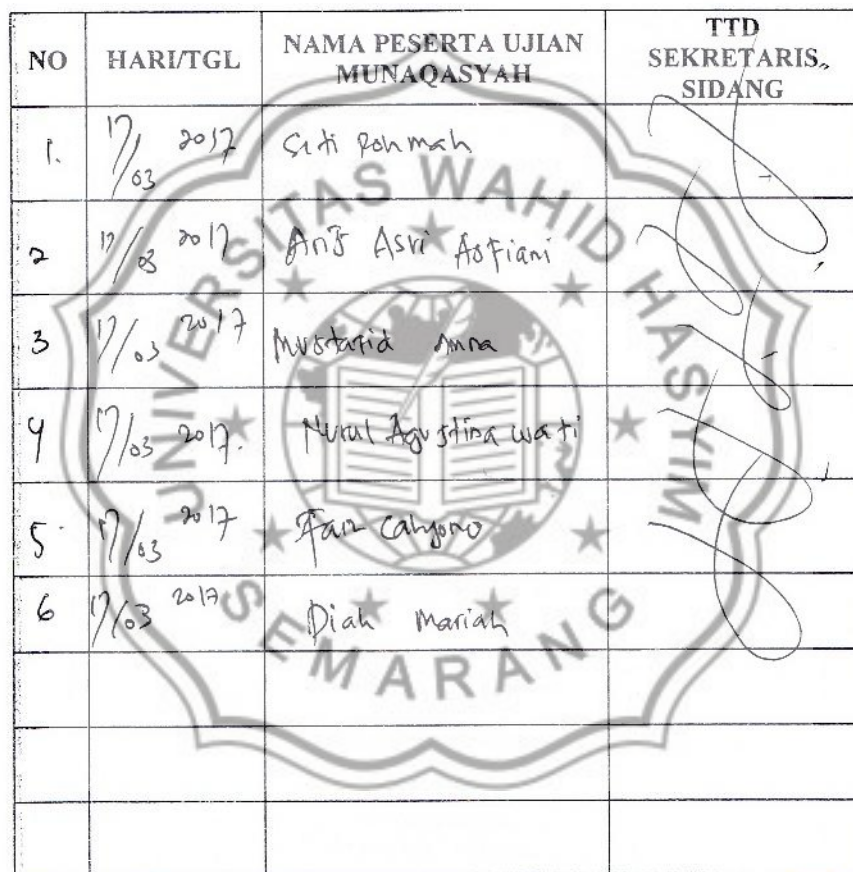 NO HARI/TGL NAMA PESERTA UJIAN MUNAQASYAH TTD SEKRETARIS SIDANG
1. 17/03 2017 Siti Rohmah
2 17/03 2017 Arif Asri Asfiani
3 17/03 2017 Mustafid
4 17/03 2017. Nurul Agustina wati
5 17/03 2017 Faiz Cahyono
6 17/03 2017 Diah Mariah
UNIVERSITAS WAHID HASYIM
SEMARANG